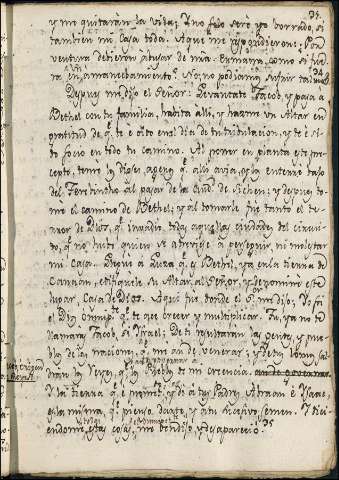 35.
y me quitarán la vida; y no solo seré yo borrado, si
tambien mi Casa toda. A que me respondieron: Por
ventura debieron abusar de mia Ermana, como si fue
ra en amancebamiento? No; no podiamos sufrir tal
Despues me dijo el Señor: Levantate Jacob, y pasa a
Bethel con tu familia, habita alli, y hazme un Altar en
gratitud de q.e te è oido en el dia de tu tribulacion, y te è si
do socio en todo tu camino. Al poner en planta este pre
cepto, tomè los Dioses agenos q.e alli avia, y los enterrè bajo
del Therebintho al pasar de la Ciud. de Sichen; y despues to
mè el camino de Bethel; y al tomarle fue tanto el te
rror de Dios, q.e invadiò todas aquellas ciudades del circui
to, q.e no huvo quien se atreviese à perseguir, ni molestar
mi Casa. Llegué a Luza q.e es Bethel, ya en la tierra de
Canaàn, edifiquele su Altar al Señor, y le pomine este
lugar, Casa de Dios. Aqui fue donde el S.r me dijo: Yo soi
el Dios Omnip. q.e te hare crecer y multiplicar. Tu, ya no te
llamaras Jacob, si Ysrael; De ti resultaràn las gentes, y pue
blos de las naciones, q.e me an de venerar; y de tus lomos sal
dran los Reyes, q.e los Pueblos de mi creencia
Y la tierra q.e è prometido, y di à tus Padres Abraan è Ysaac,
es la misma, q.e pienso darte, y à tu sucesivo semen. Y dici
endome estas cosas, me bendijo, y desapareciò.